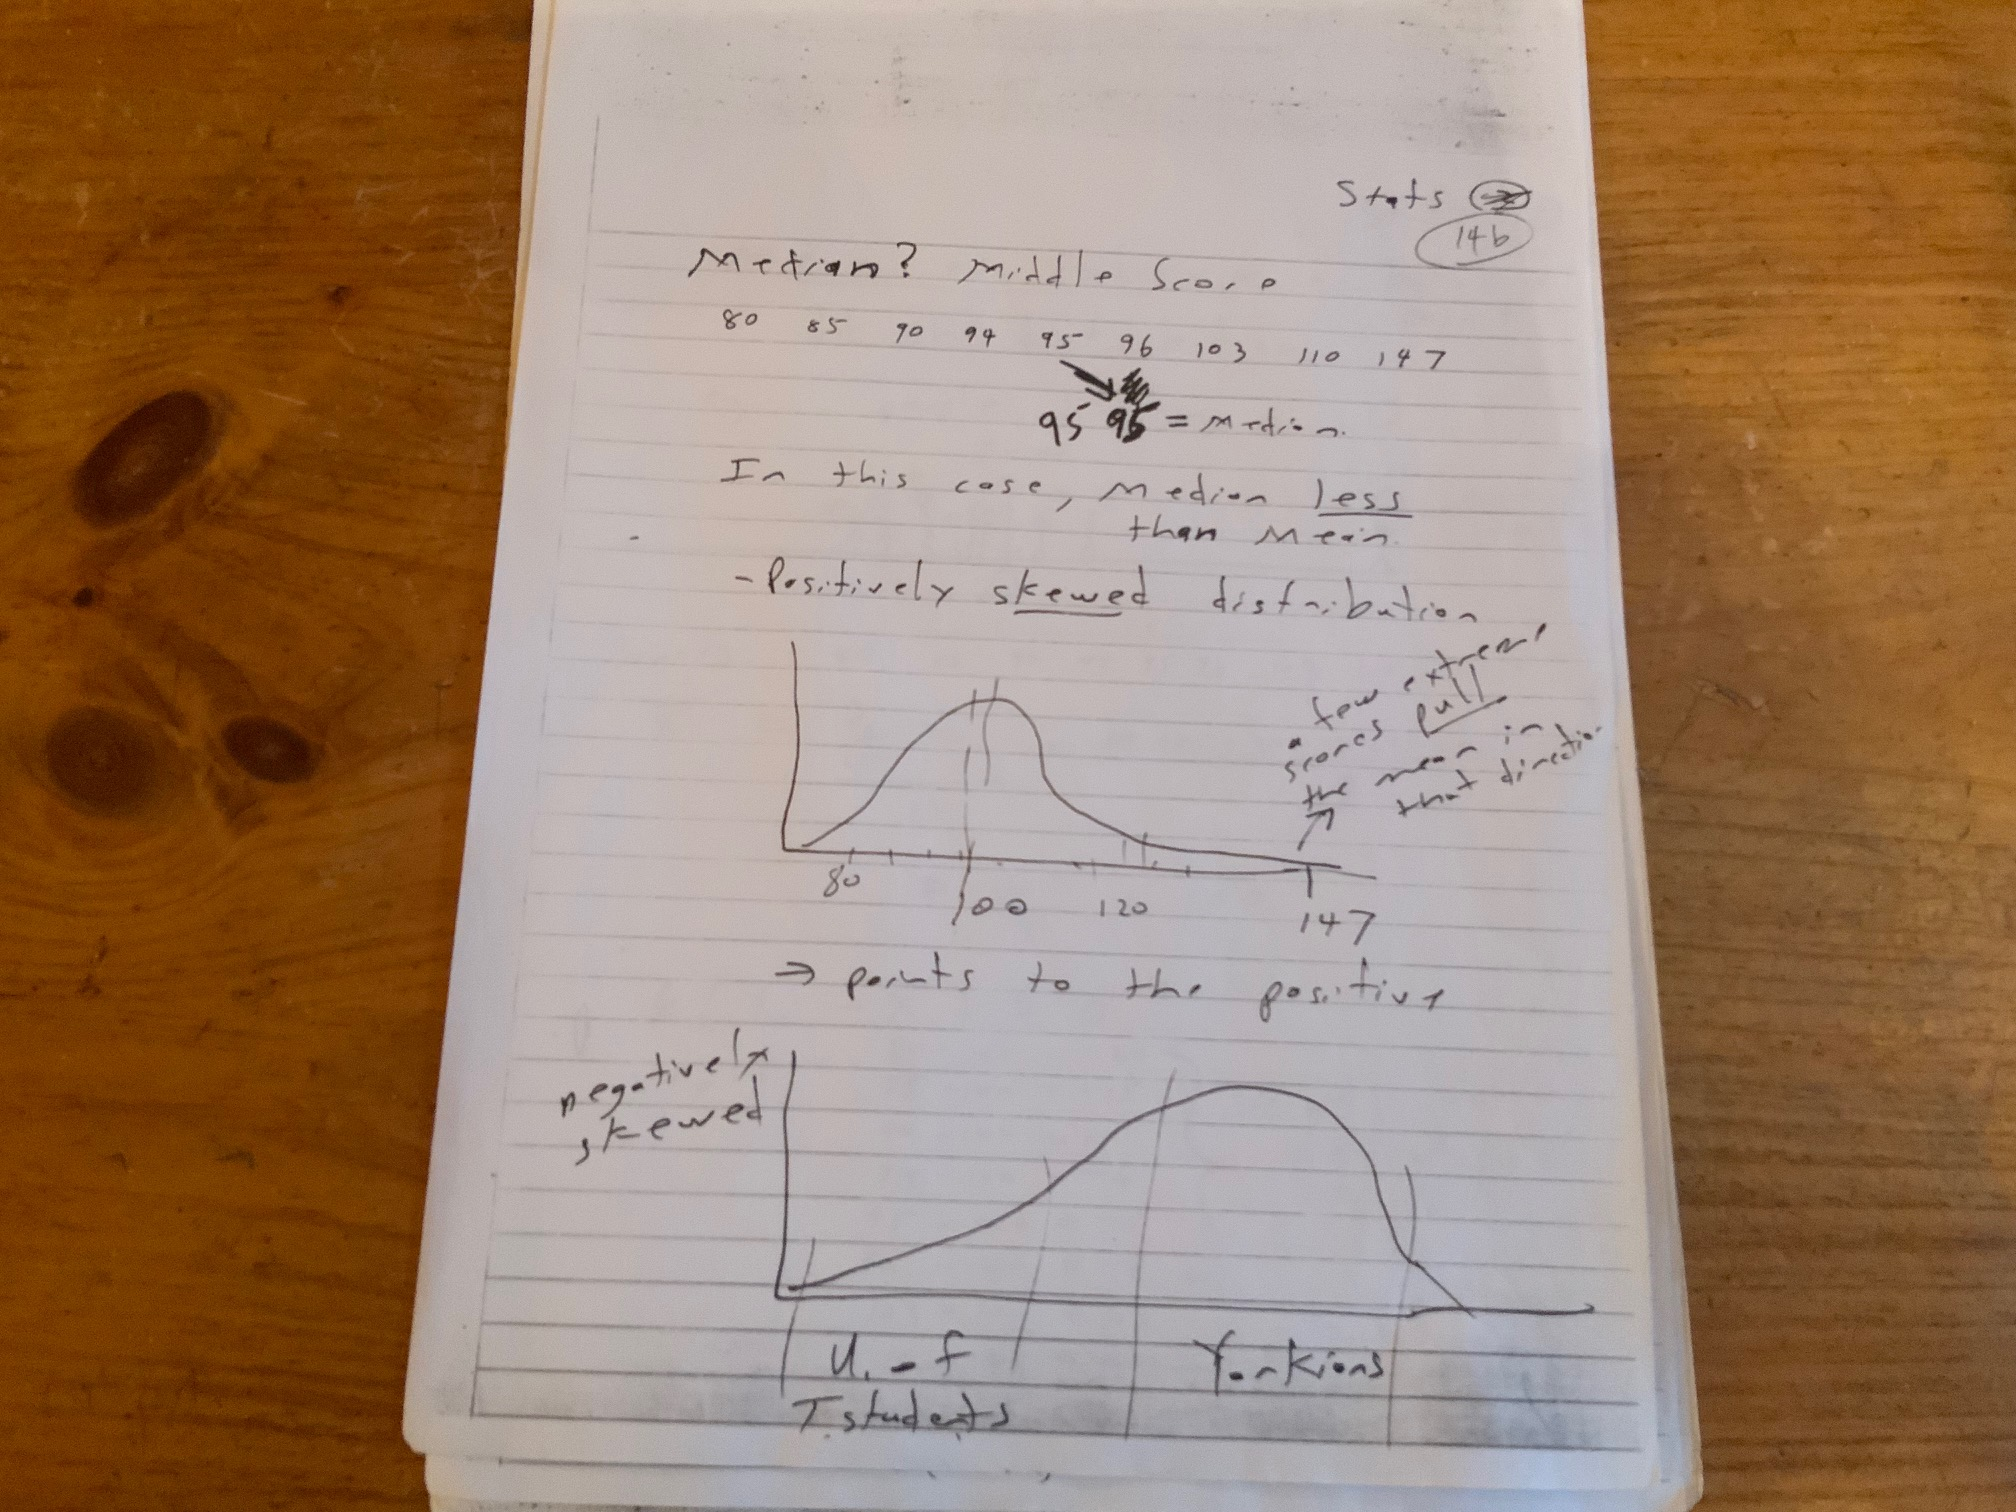 Stats
14b
Median? Middle Score
80 85 90 94 95 96 103 110 147
95 95 = median.
In this case, Median less
than Mean.
- Positively skewed distribution
a few extreme
scores pull
the mean in
that direction
80 100 120 147
→ points to the positive
negatively
skewed
U. of Yorkions
T students